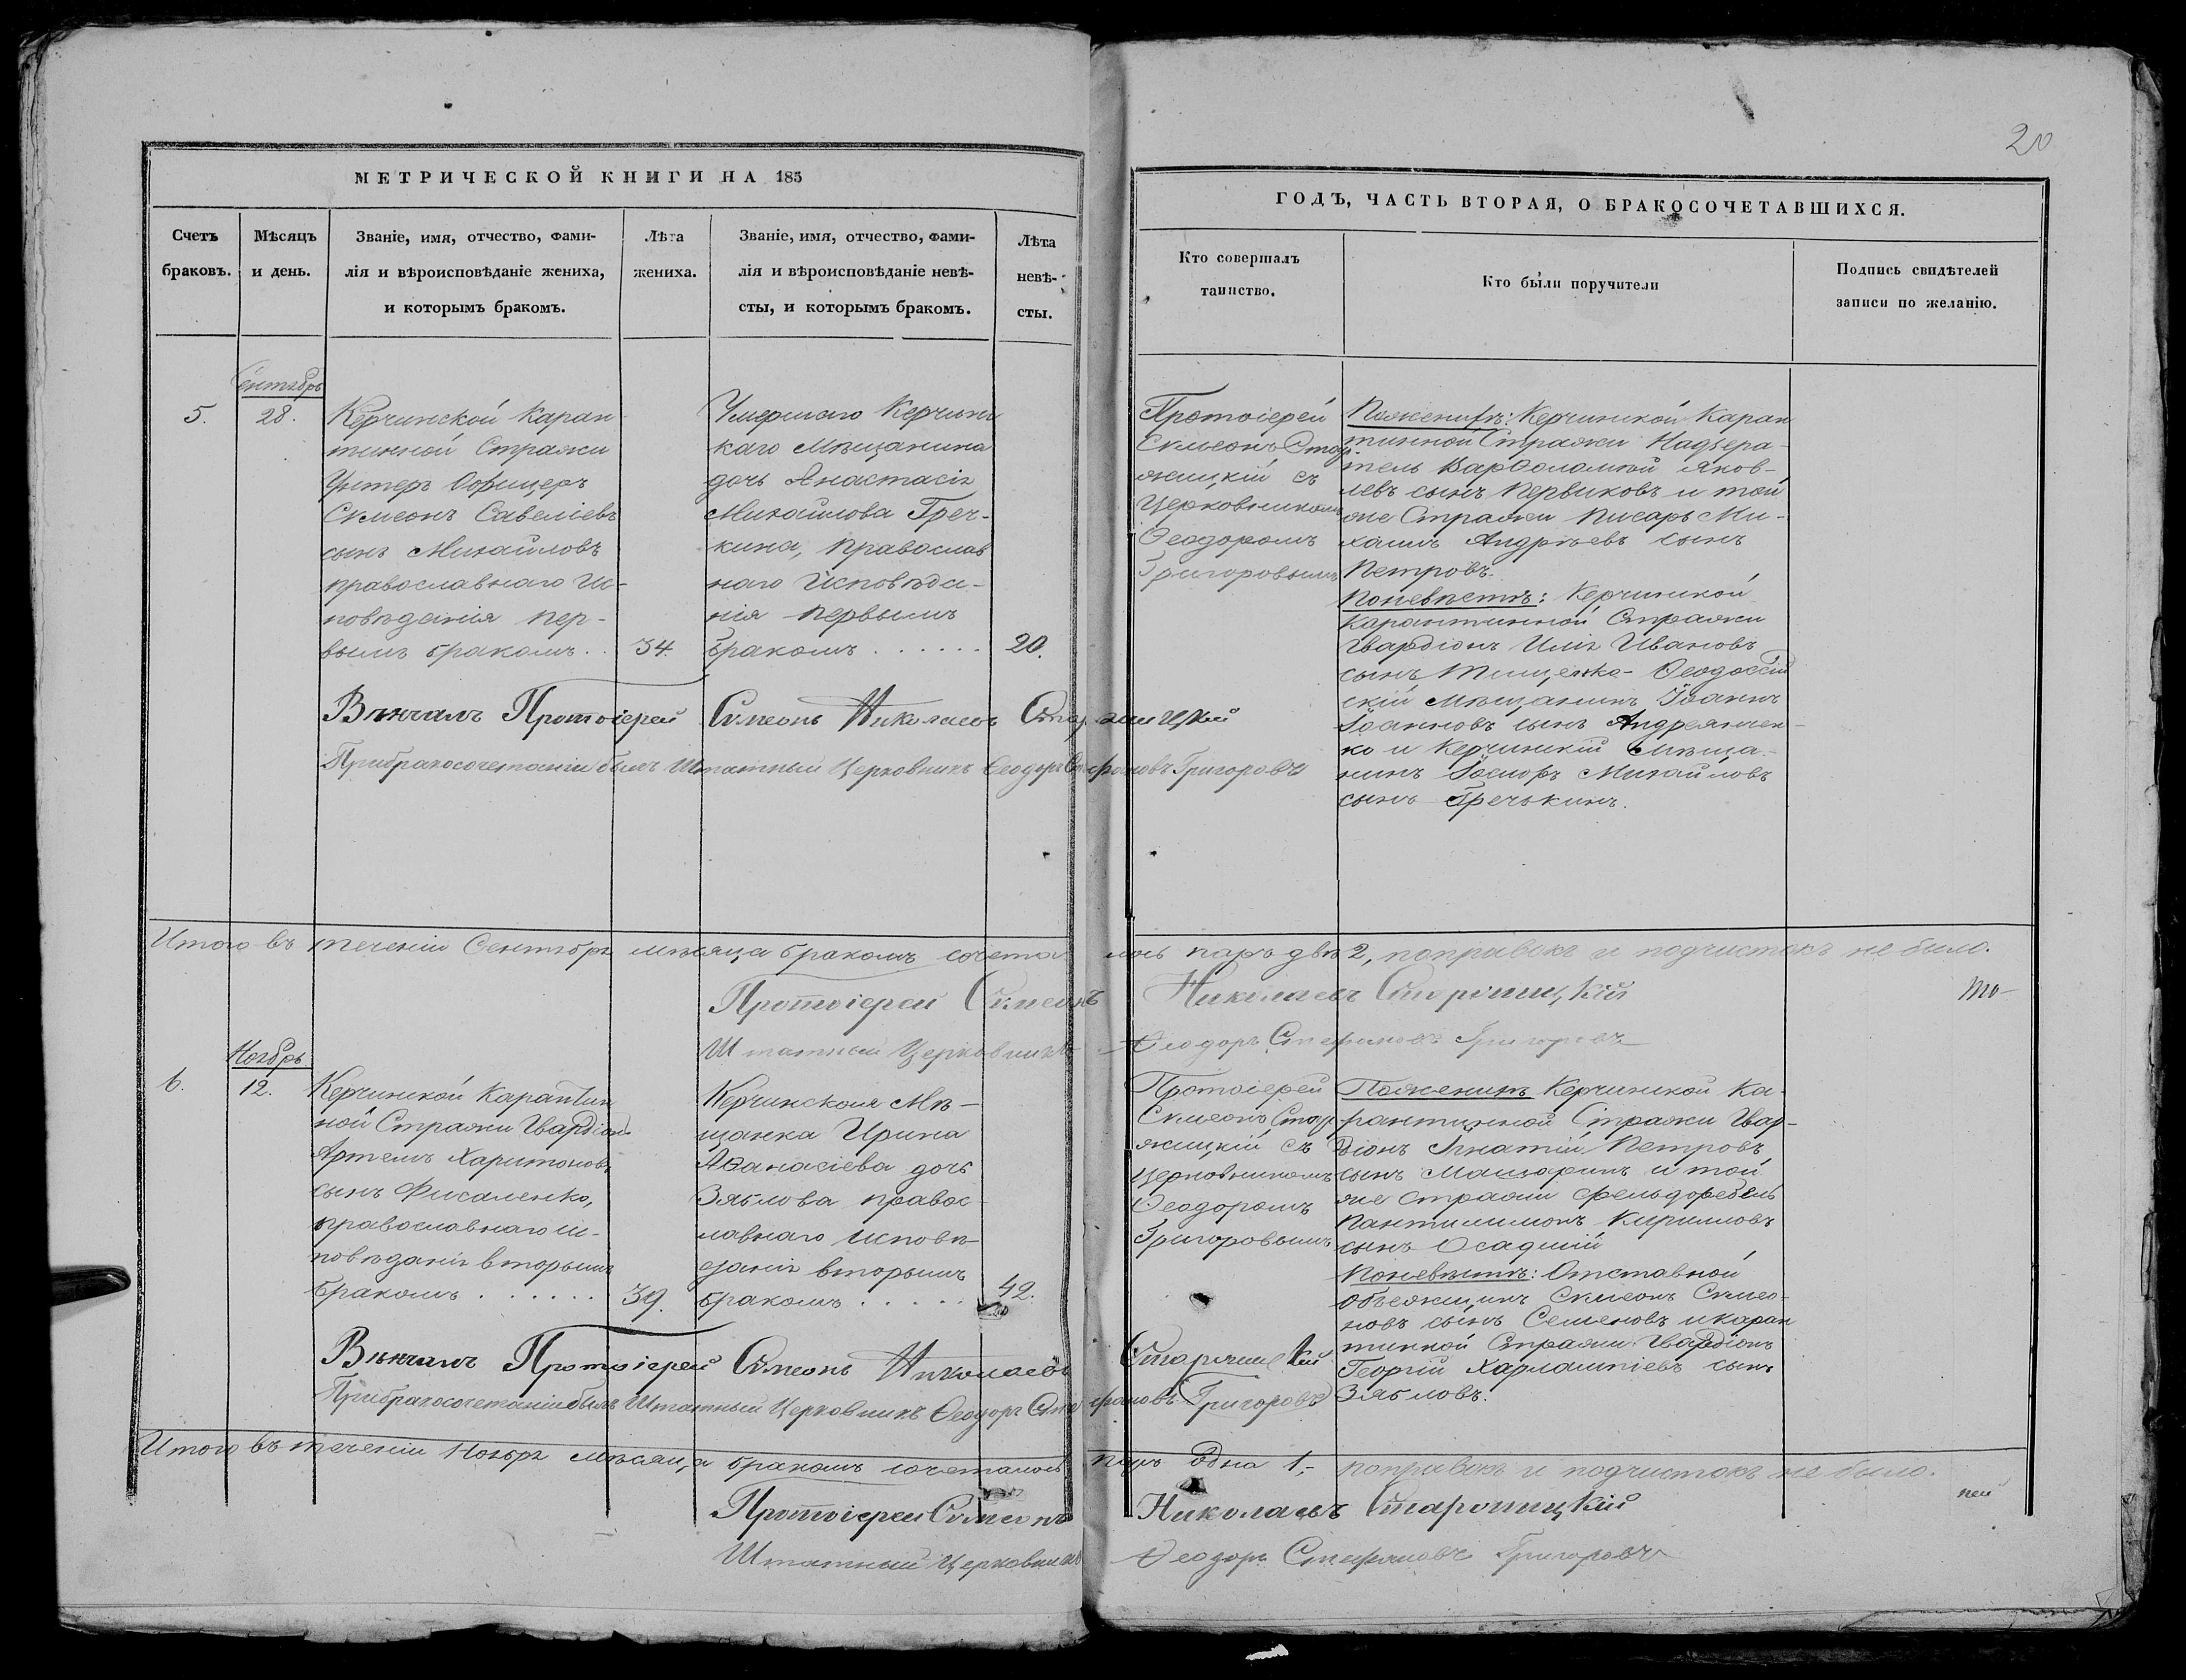 20
МЕТРИЧЕСКОЙ КНИГИ НА 185
ГОДЪ, ЧАСТЬ ВТОРАЯ, О БРАКОСОЧЕТАВШИХСЯ.
Счетъ
браковъ.
Мѣсяцъ
и день.
Званіе, имя, отчество, Фами-
лія и вѣроисповѣданіе жениха,
и которымъ бракомъ.
Лѣта
жениха.
Званіе, имя, отчество, Фами-
лія и вѣроисповѣданіе невѣ-
сты, и которымъ бракомъ.
Лѣта
невѣ-
сты.
Кто совершалъ
таинство.
Кто были поручители
Подпись свидѣтелей
записи по желанію.
Сентябрь
5.
28.
Керчинской Каран
тинной Стражи
Унтеръ Офицеръ
Симеонъ Савеліевъ
сынъ Михайловъ
православнаго Ис-
повѣданія пер-
вымъ бракомъ . .
34.
Умершаго Керчинс
каго Мѣщанина
дочь Анастасія
Михайлова Греч-
кина, Православ
наго Исповѣда-
нія первымъ
бракомъ . . . . . .
20.
Протоіерей
Симеонъ Стар-
жицкій съ
Церковникомъ
Ѳеодоромъ
Григоровымъ
Поженихѣ: Керчинской Каран
тинной Стражи Надзера-
тель Варѳоломѣй Яков-
левъ сынъ Первиковъ и той
же Стражи Писарь Ми-
хаилъ Андрѣевъ сынъ
Петровъ.
Поневѣстѣ: Керчинской
Карантинной Стражи
Гвардіонъ Илія Ивановъ
сынъ Тищенко - Ѳеодосій
скій Мѣщанинъ Іоаннъ
Іоанновъ сынъ Андреящен-
ко и Керчинскій Мѣща-
нинъ Іосифъ Михайловъ
сынъ Гречькинъ.
Вѣнчалъ Протоіерей Симеонъ Николаевъ Старжицкій
Прибракосочетаніи былъ Штатный Церковникъ Ѳеодоръ Стефановъ Григоровъ
Итого въ теченіи Сентября мѣсяца бракомъ сочета лось паръ двѣ 2, поправокъ и подчистокъ не было.
Протоіерей Симеонъ Николаевъ Старжицкій
то-
Штатный Церковникъ Ѳеодоръ Стефановъ Григоровъ
Ноябрь
6.
12.
Керчинской Карантин
ной Стражи Гвардіонъ
Артемъ Харитоновъ
сынъ Фисаленко,
православнаго ис-
повѣданія вторымъ
бракомъ . . . . . .
39.
Керчинская Мѣ-
щанка Ирина
Аѳанасіева дочь
Зяблова правос-
лавнаго исповѣ-
данія вторымъ
бракомъ . . . . .
42.
Протоіерей
Симеонъ Стар-
жицкій съ
Церковникомъ
Ѳеодоромъ
Григоровымъ
Поженихѣ Керчинской Ка-
рантинной Стражи Гвар-
діонъ Игнатій Петровъ
сынъ и той
же Стражи Фельдфебель
Пантилимонъ Кирилловъ
сынъ Осадшій
Поневѣстѣ: Отставной
Объезжчикъ Симеонъ Симео-
новъ сынъ Семеновъ и каран
тинной Стражи Гвардіонъ
Георгій Харлампіевъ сынъ
Зябловъ.
Вѣнчалъ Протоіерей Симеонъ Николаевъ Старжицкій
Прибракосочетаніи былъ Штатный Церковникъ Ѳеодоръ Стефановъ Григоровъ
Итого въ теченіи Ноября мѣсяца бракомъ сочеталось паръ одна 1,- поправокъ и подчистокъ не было.
Протоіерей Симеонъ Николаевъ Старжицкій
Штатный Церковникъ Ѳеодоръ Стефановъ Григоровъ